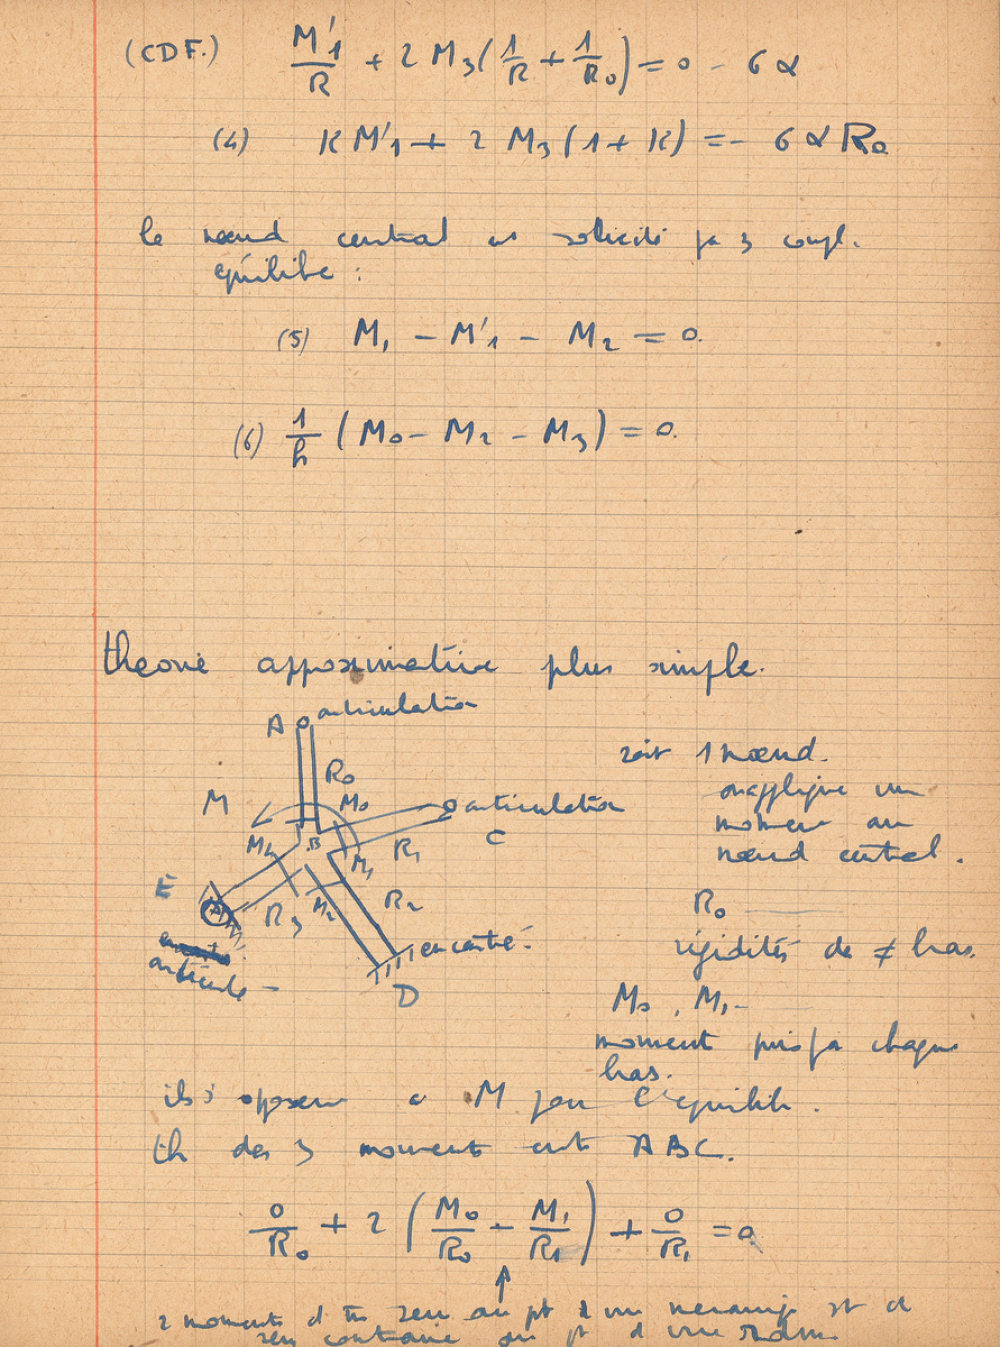 (CDF.) M'1/R + 2 M3 (1/R + 1/R0) = 0 - 6α
(4) KM'1 + 2 M3 (1 + K) = - 6 α R0
le nœud central es sollicité pa 3 coupl.
équilibe :
(5) M1 - M'1 - M2 = 0.
(6) 1/h (M0 - M2 - M3) = 0.
theorie approximative plus simple.
A articulation
R0
M M0 articulation
M4 B M1 R1 C
E R3 M2 R2
encastré.
articulé
D
soit 1 nœud.
on applique un
moment au
nœud central.
R0
rigidités de ≠ bras.
M0, M1 -
moment pris pa chaque
bras.
ils s'opposen a M pou l'equilib.
th des 3 moments ent ABC.
0/R0 + 2 (M0/R0 - M1/R1) + 0/R1 = 0
2 moments d m sens au pt d une st d
sens contraire au pt d une